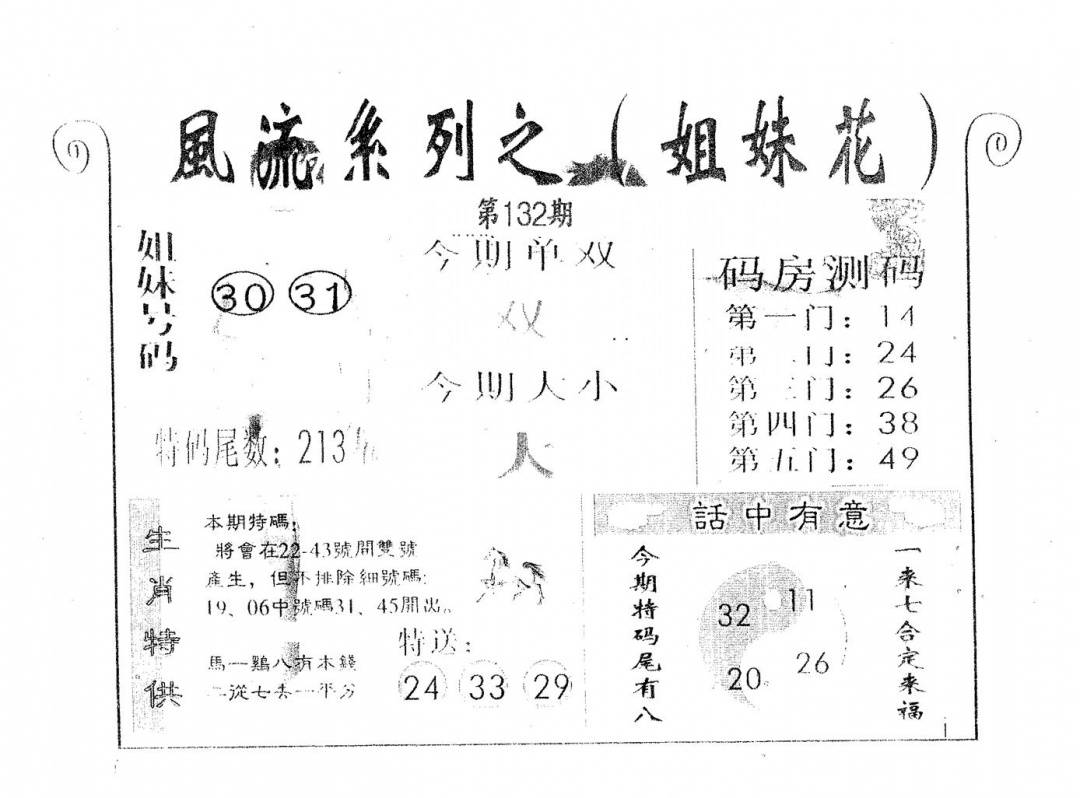 風流系列之(姐妹花)
第132期
姐妹号码
30 31
今期单双
双
今期大小
大
特码尾数：213
码房测码
第一门：14
第二门：24
第三门：26
第四门：38
第五门：49
生肖特供
本期特碼：
將會在22-43號開雙號
產生，但不排除細號碼：
19、06中號碼31、45開出。
馬一鷄八有木錢
二從七去一平分
特送：
24 33 29
話中有意
今期特码尾有八
32 11
20 26
一来七合定来福